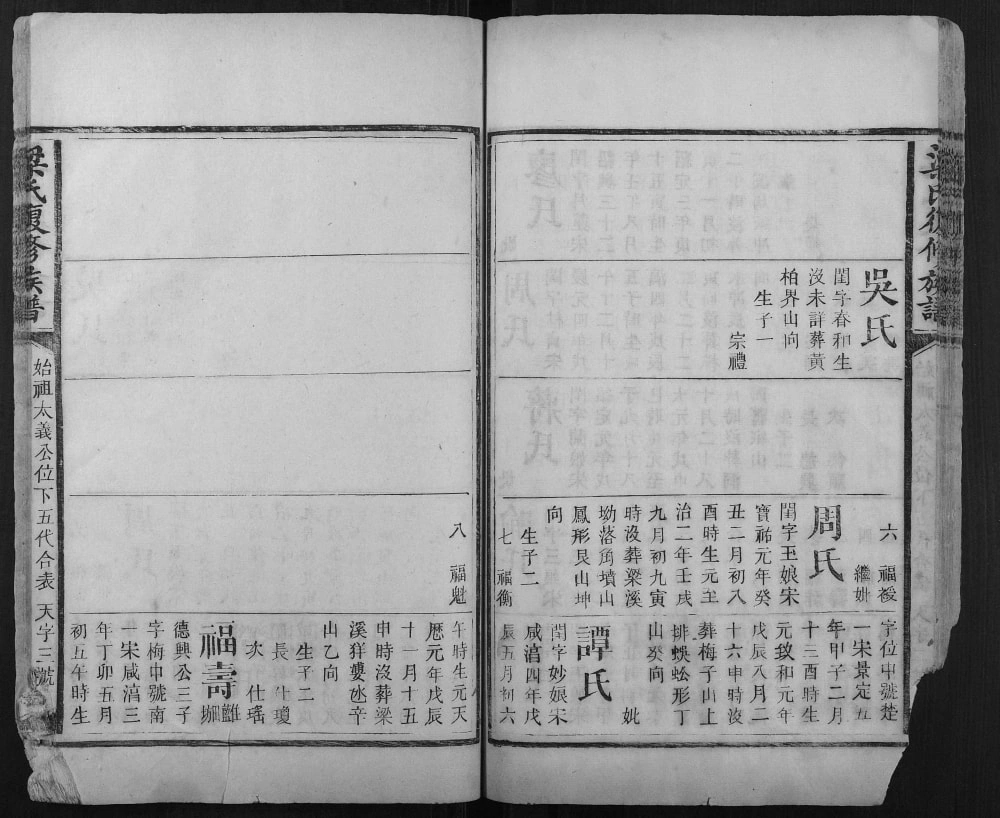 吳氏
閨字春和生
沒未詳葬黃
柏界山向
生子一
宗禮
六 福禐
繼妣
周氏
閨字王娘宋
寶祐元年癸
丑二月初八
酉時生元至
治二年壬戌
九月初九寅
時沒葬梁溪
坳落角墳山
鳳形艮山坤
向
生子二
七 福衡
字位中號楚
一宋景定五
年甲子二月
十三酉時生
元致和元年
戊辰八月二
十六申時沒
葬梅子山上
排蜈蚣形丁
山癸向
妣
譚氏
閨字妙娘宋
咸淳四年戊
辰五月初六
梁氏復修族譜
始祖太義公位下五代合表 天字三號
八 福魁
午時生元天
厯元年戊辰
十一月十五
申時沒葬梁
溪羊婆氹辛
山乙向
生子二
長 仕瓊
次 仕瑤
福壽
德興公三子
字梅中號南
一宋咸淳三
年丁卯五月
初五午時生